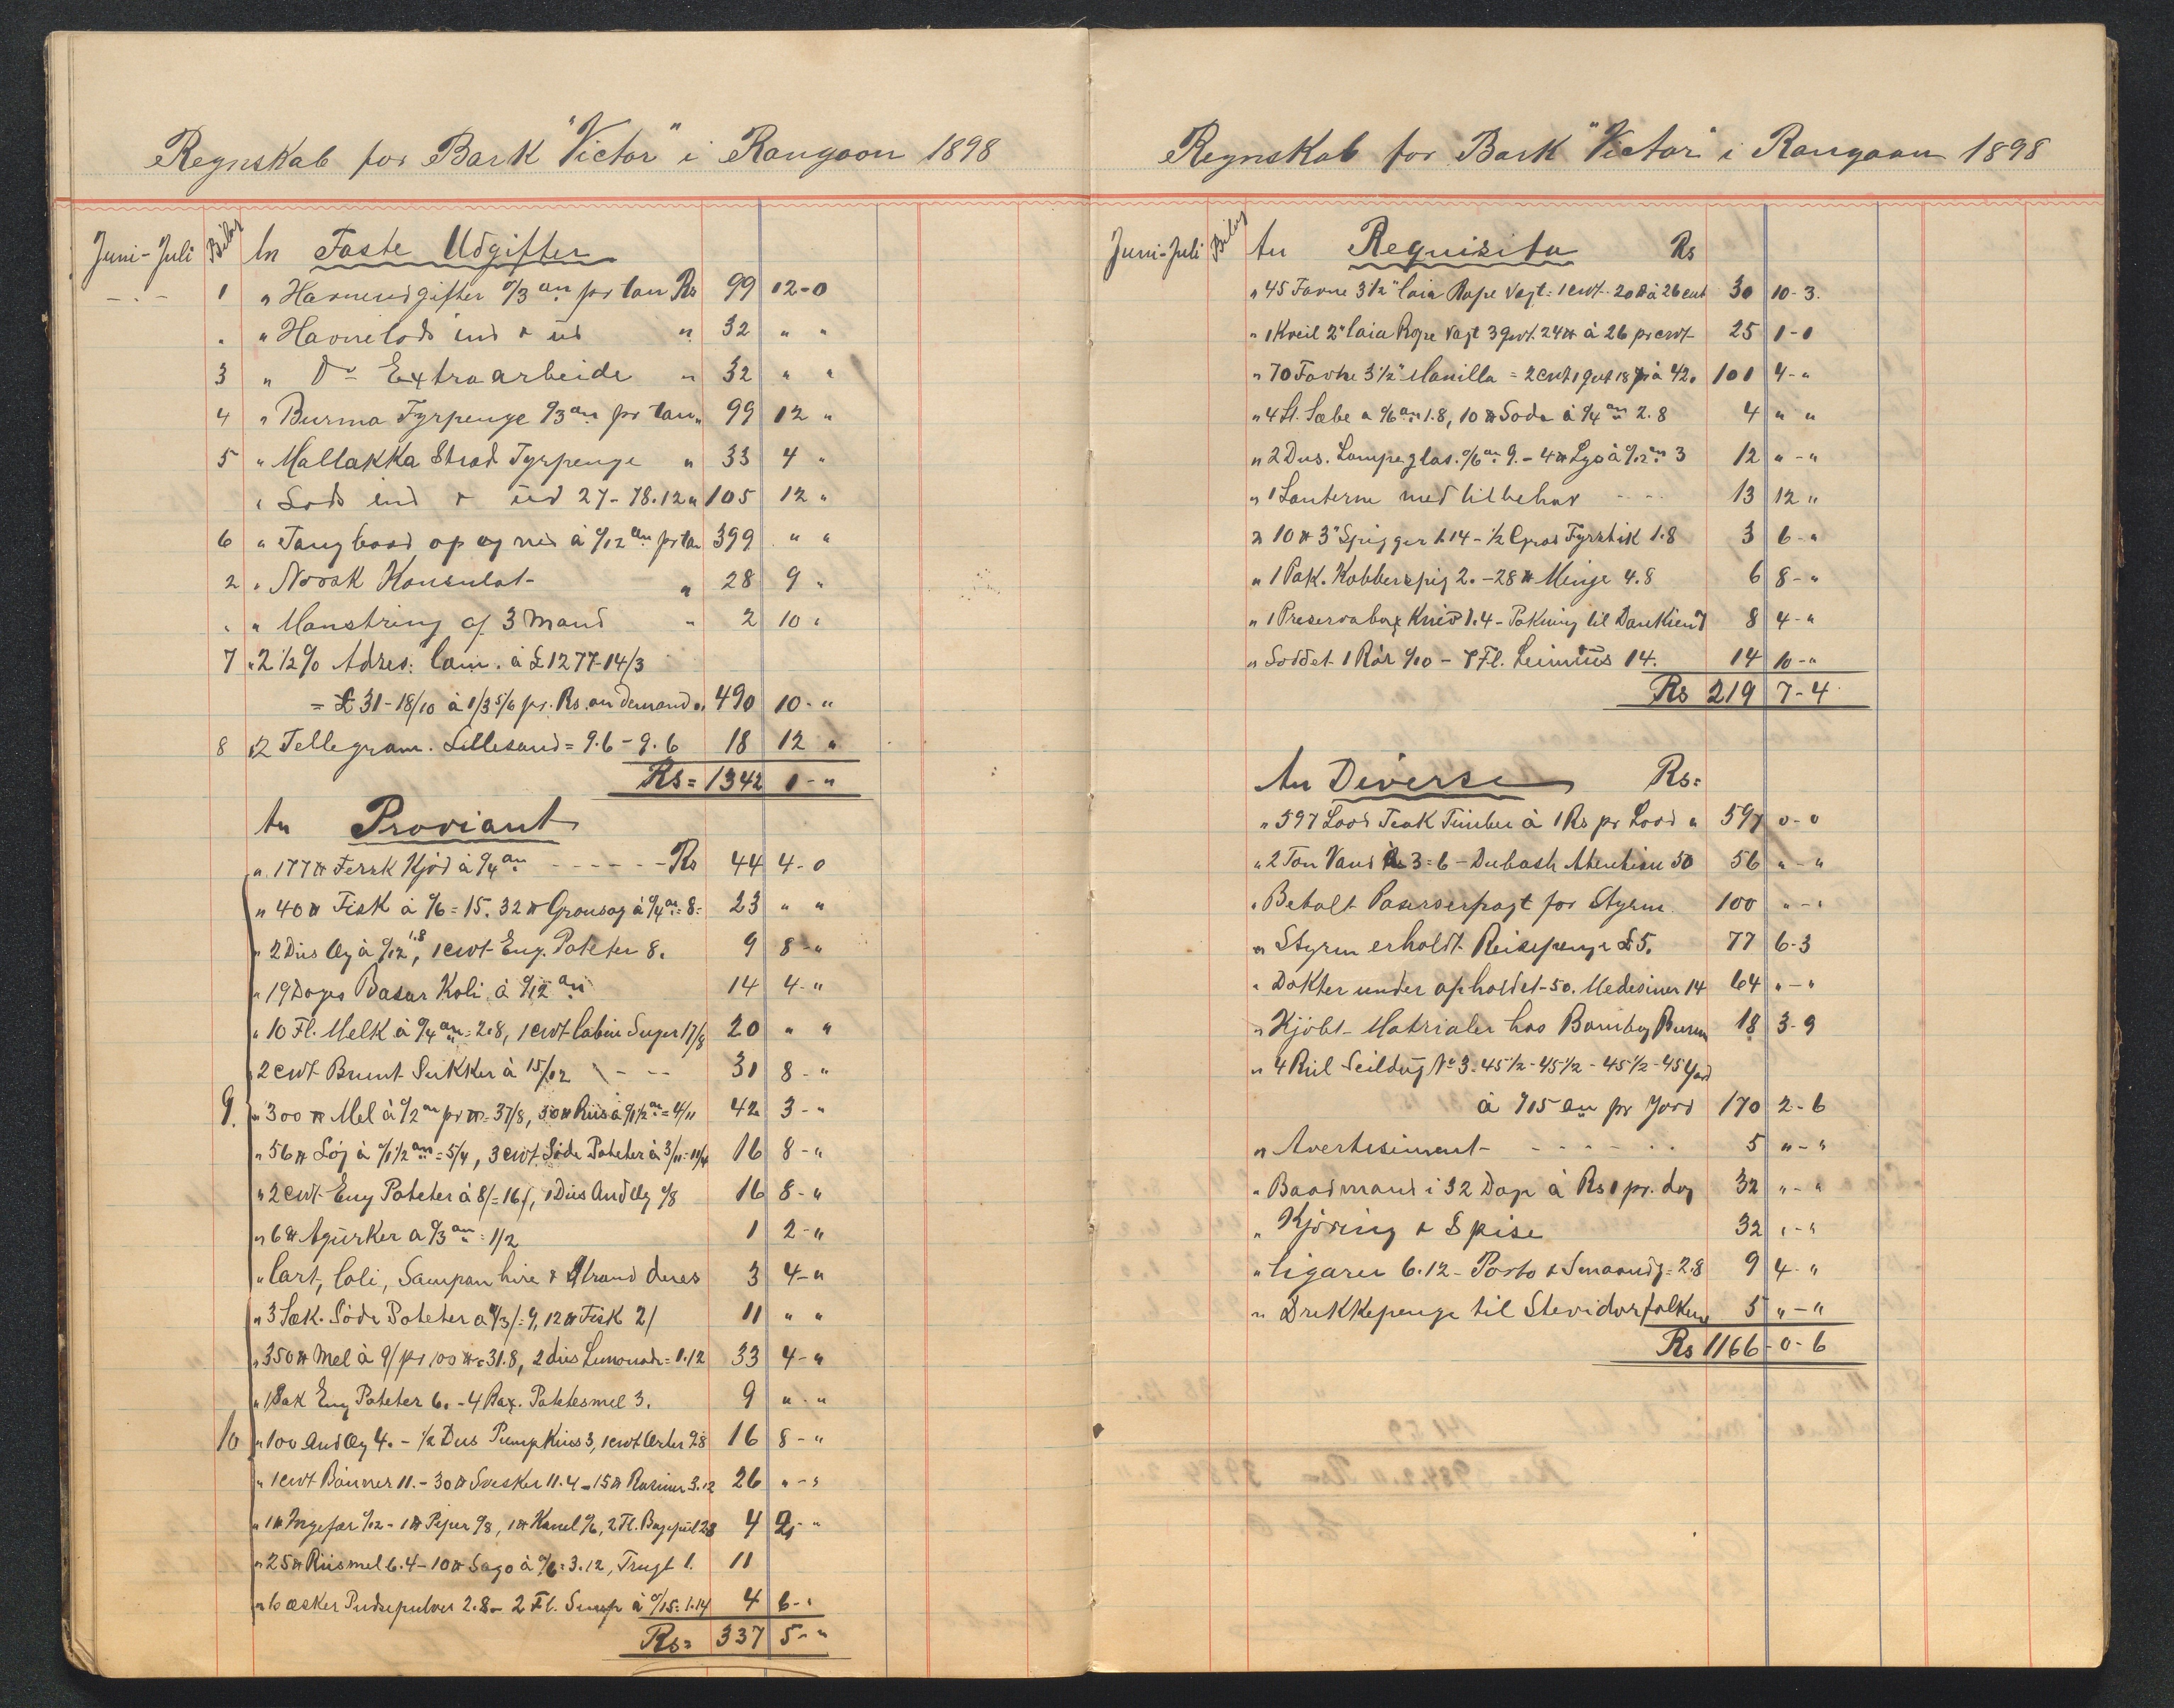 Regnskab for Bark "Victor" i Rangoon 1898
Juni-Juli Bilag An Faste Udgifter
1 " Havneudgifter 0/3 an pr ton Rs 99 12-0
" Havnelods ind & ud " 32 " "
3 " Do Extraarbeide " 32 " "
4 " Burma Fyrpenge 0/3 an pr ton " 99 12 "
5 " Mallakka Stræd Fyrpenge " 33 4 "
" Lods ind & ud 27-78.12 " 105 12 "
6 " Taugbaad op og ned à 0/12 an pr ton 399 " "
2 " Norsk Konsulat " 28 9 "
" Mønstring af 3 Mand " 2 10 "
7 " 2 1/2 % Adres: Com. à £1277-14/3
= £31-18/10 à 1/3 5/6 pr. Rs. on demand " 490 10- "
8 " 2 Tellegram. Lillesand = 9.6 - 9.6 18 12 "
Rs = 1342 1- "
An Proviant
" 177 ℔ Fersk Kjöd à 0/4 an - - - - - Rs 44 4-0
" 40 ℔ Fisk à 0/6 = 15. 32 ℔ Grønsag à 0/4 an = 8 = 23 " "
" 2 Dus Æg à 0/12 1.8, 1 cwt Eng. Poteter 8. 9 8- "
" 19 Dages Basar Koli à 0/12 an 14 4- "
" 10 Fl. Melk à 0/4 an = 2.8, 1 cwt Cabin Suger 17/8 20 " "
2 cwt Brunt Sukker à 15/12 - - 31 8- "
9. " 300 ℔ Mel à 0/2 an pr ℔ = 37/8, 50 ℔ Riis à 0/1 1/2 an = 4/11 42 3- "
" 56 ℔ Løg à 0/1 1/2 an = 5/4, 3 cwt Söde Poteter à 3/11 = 11/4 16 8- "
" 2 cwt Eng Poteter à 8/ = 16/, 1 Dus And Æg 0/8 16 8- "
" 6 ℔ Agurker a 0/3 an = 1/2 1 2- "
" Cart, Coli, Sampan hire & Strand dues 3 4- "
" 3 Sæk. Söde Poteter a 3/ = 9, 12 ℔ Fisk 2/ 11 " "
" 350 ℔ Mel à 9/ pr 100 ℔ = 31.8, 2 dus Lemonade = 1.12 33 4- "
" 1 Sak Eng Poteter 6. - 4 Pax. Potetesmel 3. 9 " - "
10 " 100 And Æg 4. - 1/2 Dus Pumpkins 3, 1 cwt Erter 9.8 16 8- "
" 1 cwt Bönner 11. - 30 ℔ Svesker 11.4 - 15 ℔ Rosiner 3.12 26 " - "
" 1 ℔ Ingefær 0/12 - 1 ℔ Peper 0/8, 1 ℔ Kanel 0/6, 2 Fl. 2.8 4 2- "
" 25 ℔ Riismel 6.4 - 10 ℔ Sago à 0/6 = 3.12, Frugt 1. 11
" 10 æsker Pudsepulver 2.8 - 2 Fl. Senep à 0/15 = 1.14 4 6- "
Rs = 337 5- "
Regnskab for Bark "Victor" i Rangoon 1898
Juni-Juli Bilag An Requisita Rs
" 45 Favne 3 1/2" Coia Rope Vægt = 1 cwt - 20 ℔ à 26 cwt 30 10-3.
" 1 Kveil 2" Coia Rope Vægt 3 qvt. 24 ℔ à 26 pr cwt 25 1-0
" 70 Favne 3 1/2" Manilla = 2 cwt 1 qvt 18 ℔ à 42. 101 4- "
" 4 St. Sæbe a 0/6 an 1.8, 10 ℔ Soda à 0/4 an 2.8 4 " "
" 2 Dus. Lampeglas. 0/6 an 9. - 4 ℔ Lys à 0/12 an 3 12 " - "
" 1 Lanterne med tilbehør - - - 13 12 "
" 10 ℔ 3" Spigger 1.14 - 1/2 Gros Fyrstik 1.8 3 6- "
" 1 Pak. Kobberspig 2. - 28 ℔ Minje 4.8 6 8- "
" 1 Preservabox Kniv 1.4 - Pakning til Dankien 7 8 4- "
" Loddet 1 Rör 0/10 - 7 Fl. 14. 14 10- "
Rs 219 7-4
An Diverse Rs =
" 597 Load Teak Timber à 1 Rs pr Load " 597 0-0
" 2 Ton Vand à 3 = 6 - Dubash 50 56 " - "
" Betalt for Styrm. 100 " - "
" Styrm erholdt Reisepenge £5. 77 6-3
" Dokter under opholdet - 50. Medesiner 14 64 " - "
" Kjöbt Matrialer hos Bombay Burma 18 3-9
" 4 Rul Seildug No 3. 45 1/2 - 45 1/2 - 45 1/2 - 45 Yard
à 0/15 an pr Yard 170 2-6
" Avertisiment - - - - - 5 " - "
" Baadmand i 32 Dage à Rs 1 pr. dag 32 " - "
" Kjöring & Spise 32 " - "
" Cigarer 6.12 - Porto & Smaaudg = 2.8 9 4- "
" Drekkepenge til Stevidorfolkene 5 " - "
Rs 1166 - 0-6